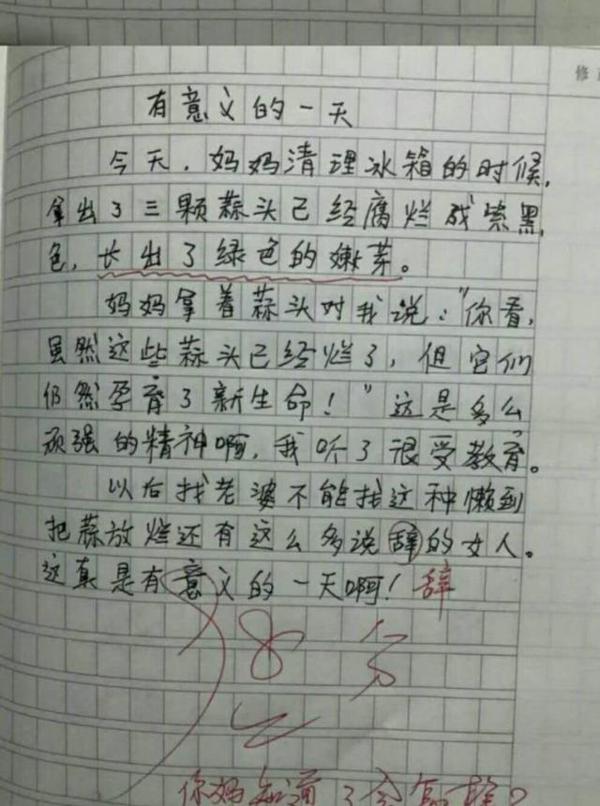 修
有意义的一天
今天，妈妈清理冰箱的时候，
拿出了三颗蒜头已经腐烂成紫黑
色，长出了绿色的嫩芽。
妈妈拿着蒜头对我说："你看，
虽然这些蒜头已经烂了，但它们
仍然孕育了新生命！"这是多么
顽强的精神啊，我听了很受教育。
以后找老婆不能找这种懒到
把蒜放烂还有这么多说辞的女人。
这真是有意义的一天啊！辞
8分
你妈知道了会怎样？